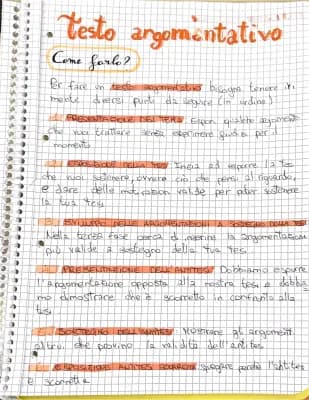 testo argomentativo
Come farlo?
Per fare un testo argomentativo bisogna tenere in
mente diversi punti da seguire (in ordine)
1. PRESENTAZIONE DEL TEMA Esponi qualsiasi argomento
che vuoi trattare senza esprimere giudizi per il
momento
2. ESPOSIZIONE DELLA TESI Inizia ad esporre la tesi
che vuoi sostenere, ovvero ciò che pensi al riguardo,
e dare delle motivazioni valide per poter sostenere
la tua tesi
3. SVILUPPO DELLE ARGOMENTAZIONI A SOSTEGNO DELLA TESI
Nella terza fase cerca di inserire le argomentazioni
più valide a sostegno della tua tesi
4. PRESENTAZIONE DELL'ANTITESI Dobbiamo esporre
l'argomentazione opposta alla nostra tesi e dobbia
mo dimostrare che è scorretto in confronto alla
tesi
5. SOSTEGNO DELL'ANTITESI Mostrare gli argomenti
altrui che provino la validità dell'antitesi
6. ANTITESI spiegare perché l'antitesi
è scorretta